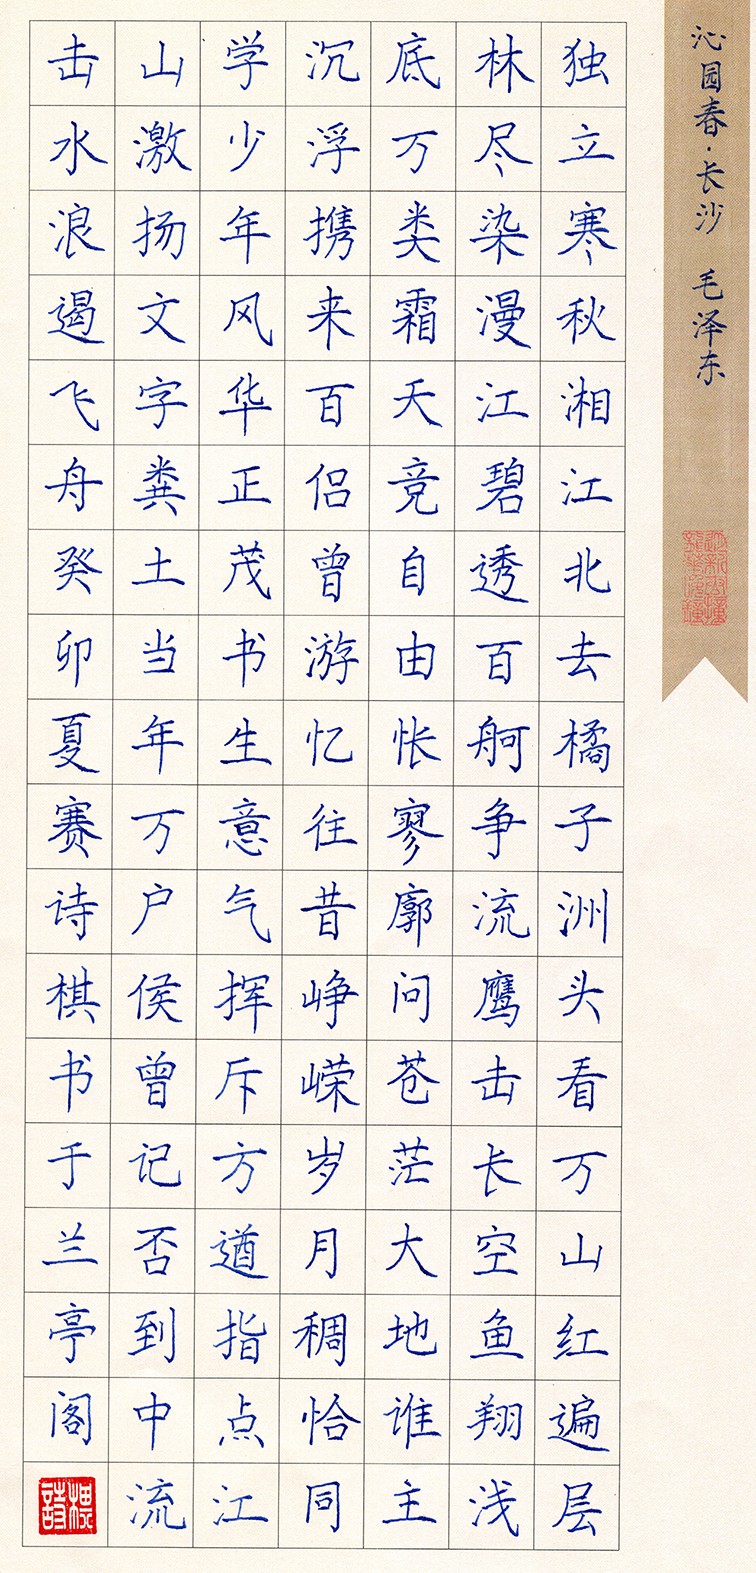 沁园春·长沙 毛泽东
独立寒秋湘江北去橘子洲头看万山红遍层
林尽染漫江碧透百舸争流鹰击长空鱼翔浅
底万类霜天竞自由怅寥廓问苍茫大地谁主
沉浮携来百侣曾游忆往昔峥嵘岁月稠恰同
学少年风华正茂书生意气挥斥方遒指点江
山激扬文字粪土当年万户侯曾记否到中流
击水浪遏飞舟癸卯夏赛诗棋书于兰亭阁